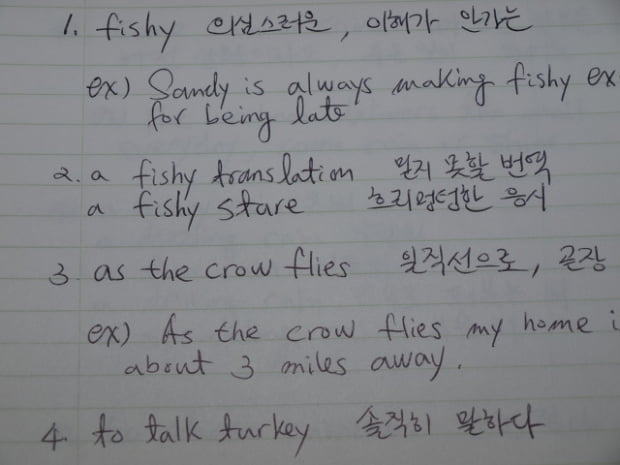 1. fishy 의심스러운, 이해가 안가는
ex) Sandy is always making fishy ex
for being late
2. a fishy translation 믿지 못할 번역
a fishy stare 흐리멍텅한 응시
3. as the crow flies 일직선으로, 곧장
ex) As the crow flies my home i
about 3 miles away.
4. to talk turkey 솔직히 말하다